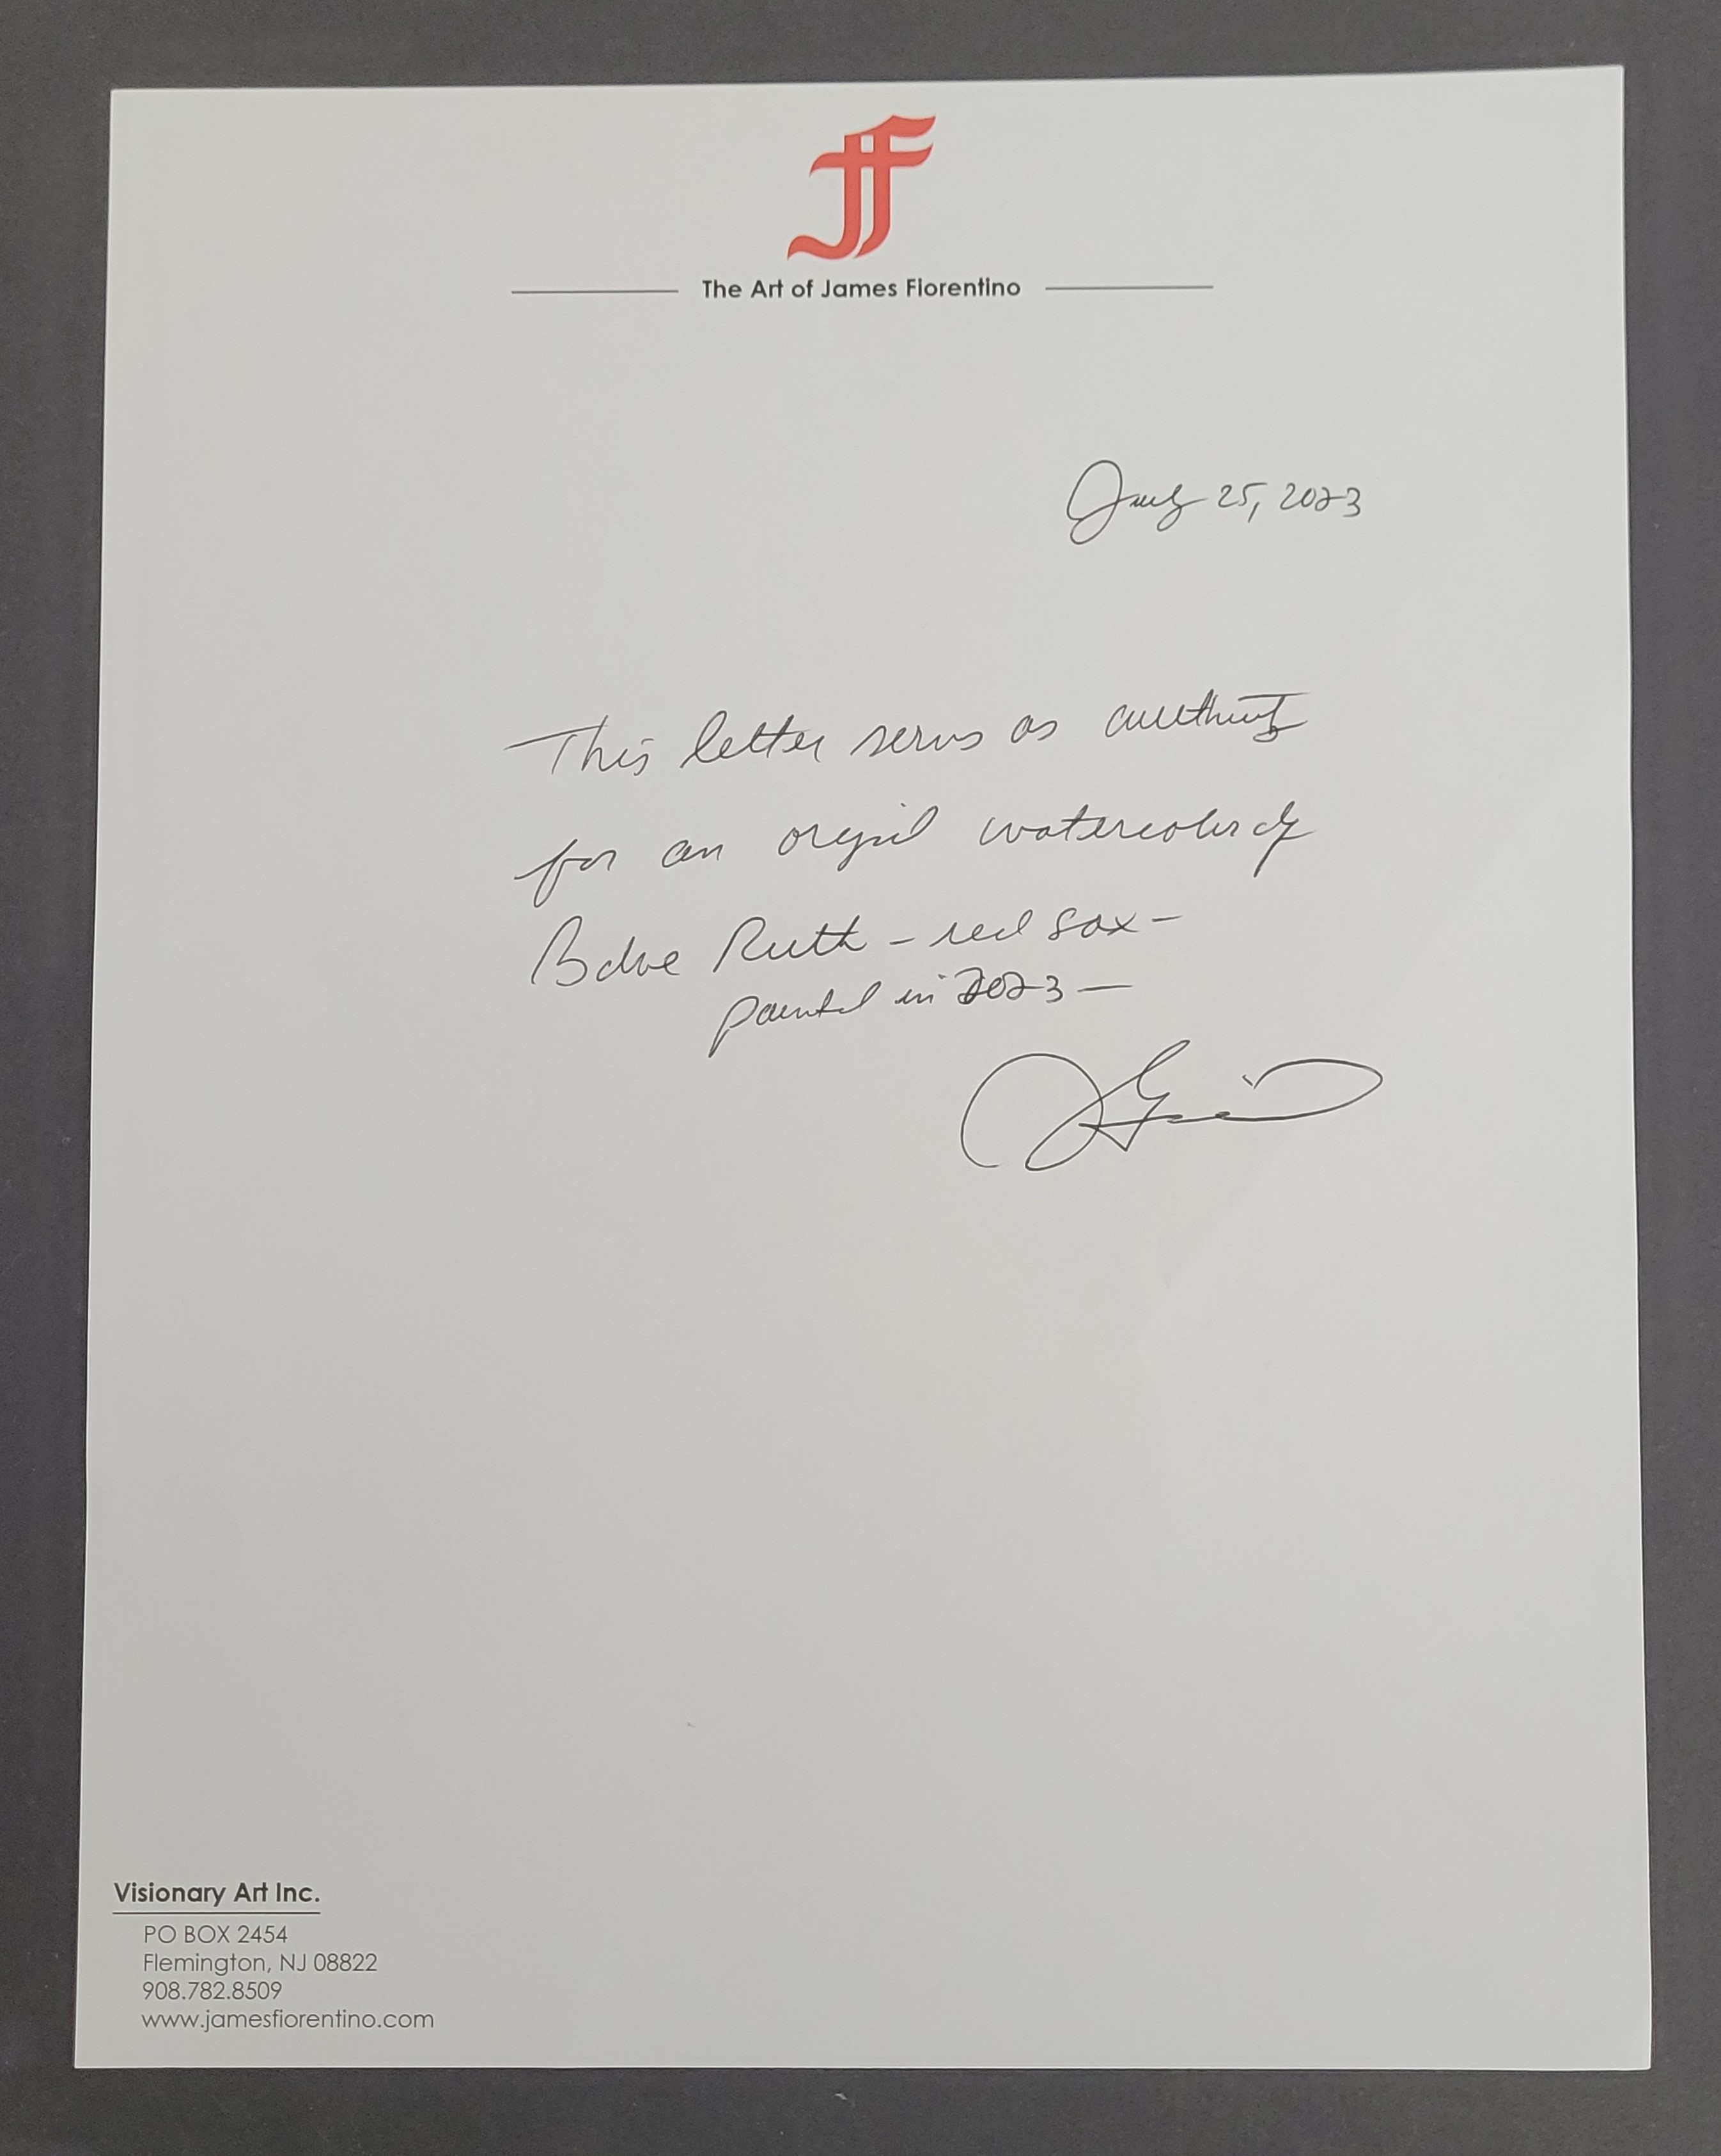 JF
The Art of James Fiorentino
July 25, 2023
This letter serves as
for an watercolor of
Babe Ruth - red sox -
painted in 2023 —
Visionary Art Inc.
PO BOX 2454
Flemington, NJ 08822
908.782.8509
www.jamesfiorentino.com